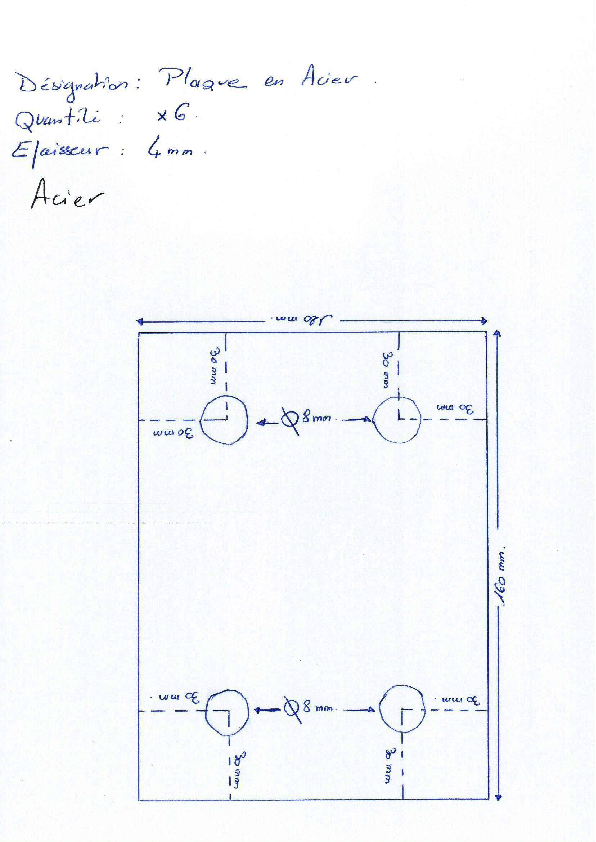 Désignation : Plaque en Acier.
Quantité : x6.
Epaisseur : 4mm.
Acier
180 mm.
30 mm
30 mm
30 mm
Ø 8mm.
30 mm
160 mm.
30 mm.
Ø 8mm.
30 mm.
30 mm
30 mm